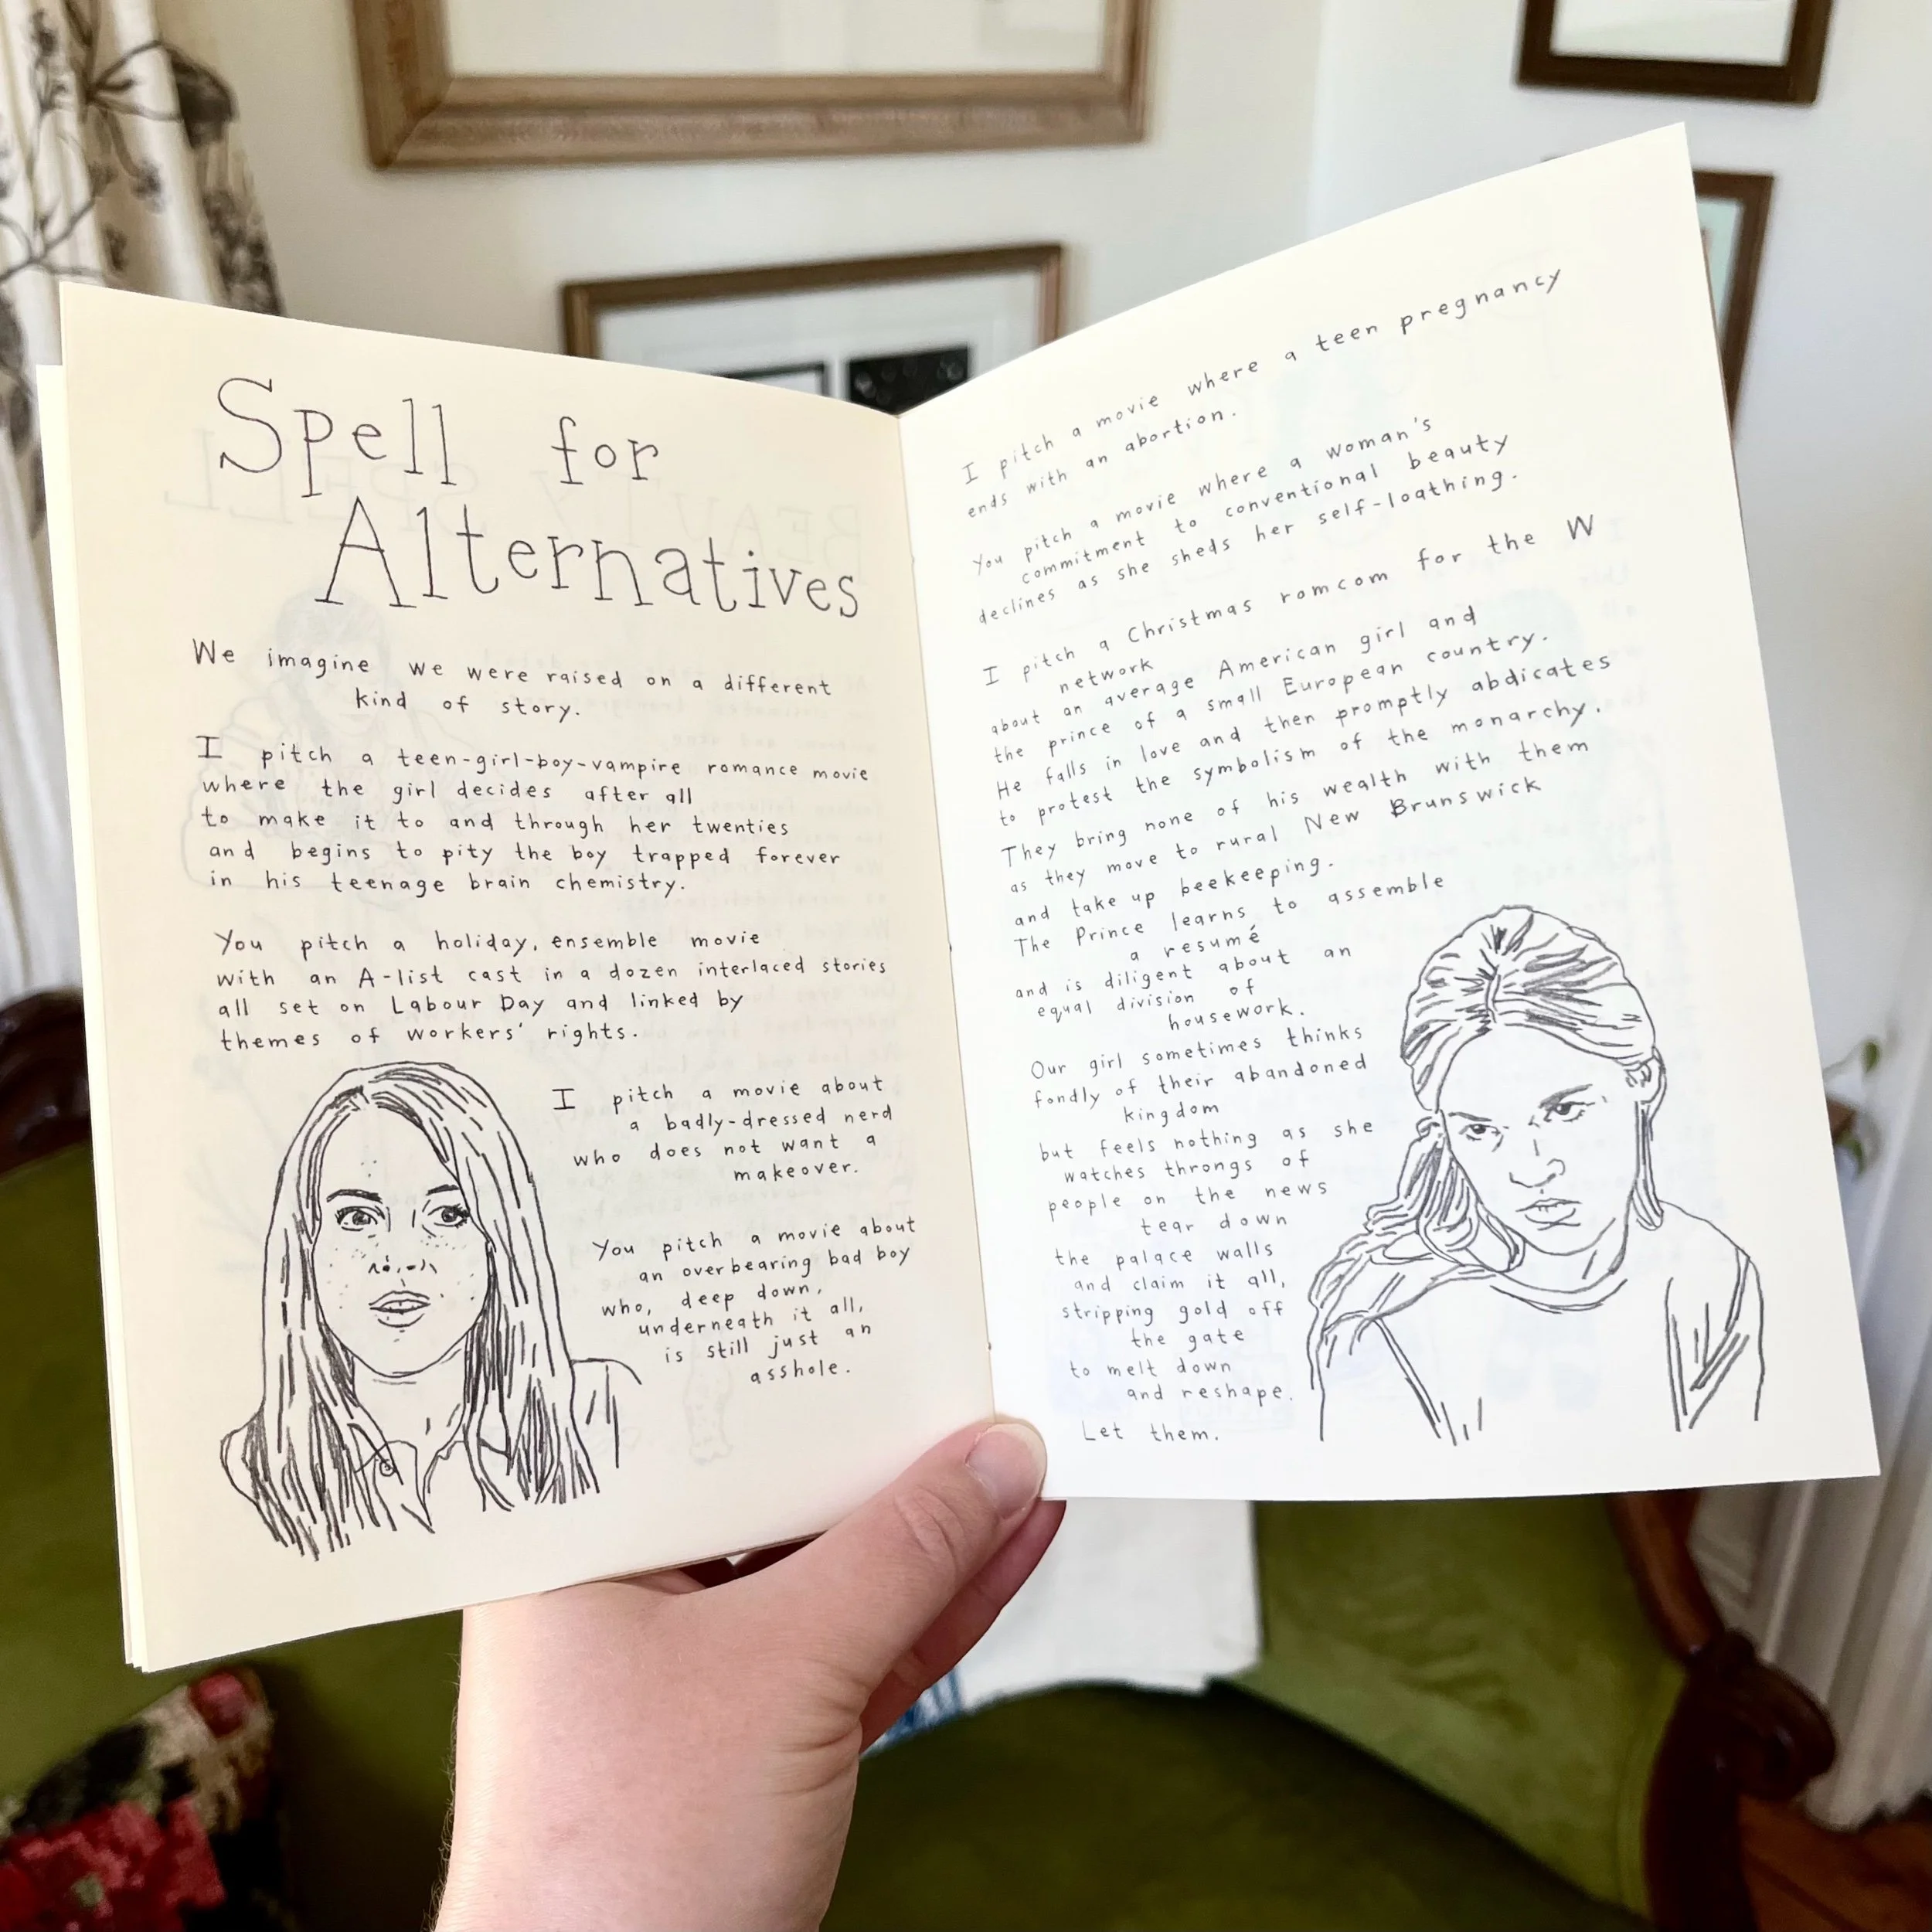 Spell for
Alternatives
We imagine we were raised on a different
kind of story.
I pitch a teen-girl-boy-vampire romance movie
where the girl decides after all
to make it to and through her twenties
and begins to pity the boy trapped forever
in his teenage brain chemistry.
You pitch a holiday, ensemble movie
with an A-list cast in a dozen interlaced stories
all set on Labour Day and linked by
themes of workers' rights.
I pitch a movie about
a badly-dressed nerd
who does not want a
makeover.
You pitch a movie about
an overbearing bad boy
who, deep down,
underneath it all,
is still just an
asshole.
I pitch a movie where a teen pregnancy
ends with an abortion.
You pitch a movie where a woman's
commitment to conventional beauty
declines as she sheds her self-loathing.
I pitch a Christmas romcom for the W
network
about an average American girl and
the prince of a small European country.
He falls in love and then promptly abdicates
to protest the symbolism of the monarchy.
They bring none of his wealth with them
as they move to rural New Brunswick
and take up beekeeping.
The Prince learns to assemble
a resumé
and is diligent about an
equal division of
housework.
Our girl sometimes thinks
fondly of their abandoned
kingdom
but feels nothing as she
watches throngs of
people on the news
tear down
the palace walls
and claim it all,
stripping gold off
the gate
to melt down
and reshape.
Let them.